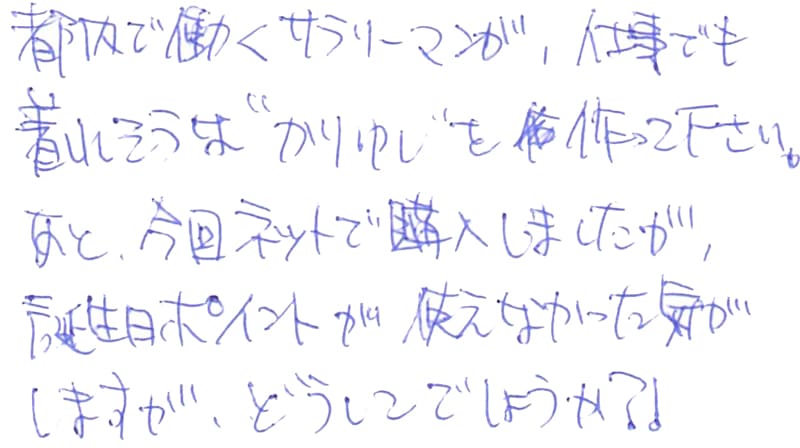 都内で働くサラリーマンが、仕事でも
着れそうな“かりゆし”を作って下さい。
あと、今回ネットで購入しましたが、
誕生日ポイントが使えなかった気が
しますが、どうしてでしょうか?!